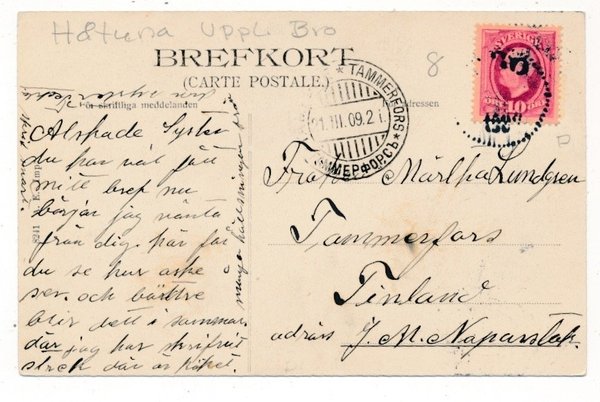 Håtuna Uppl. Bro
8
BREFKORT
(CARTE POSTALE.)
För skriftliga meddelanden
adressen
SVERIGE
10
ÖRE
ÖRE
* TAMMERFORS *
III.09.2
ТАММЕРФОРСЪ
Älskade Syster
du har väl fått
mitt bref nu
börjar jag vänta
från dig. här får
du se hur
ser och bättre
blir dett i sommar.
där jag har skrifvit
streck där är köket.
många hälsningar från
Märtha Lundgren
Tammerfors
Finland
adräss J. M. Naparstok
8241